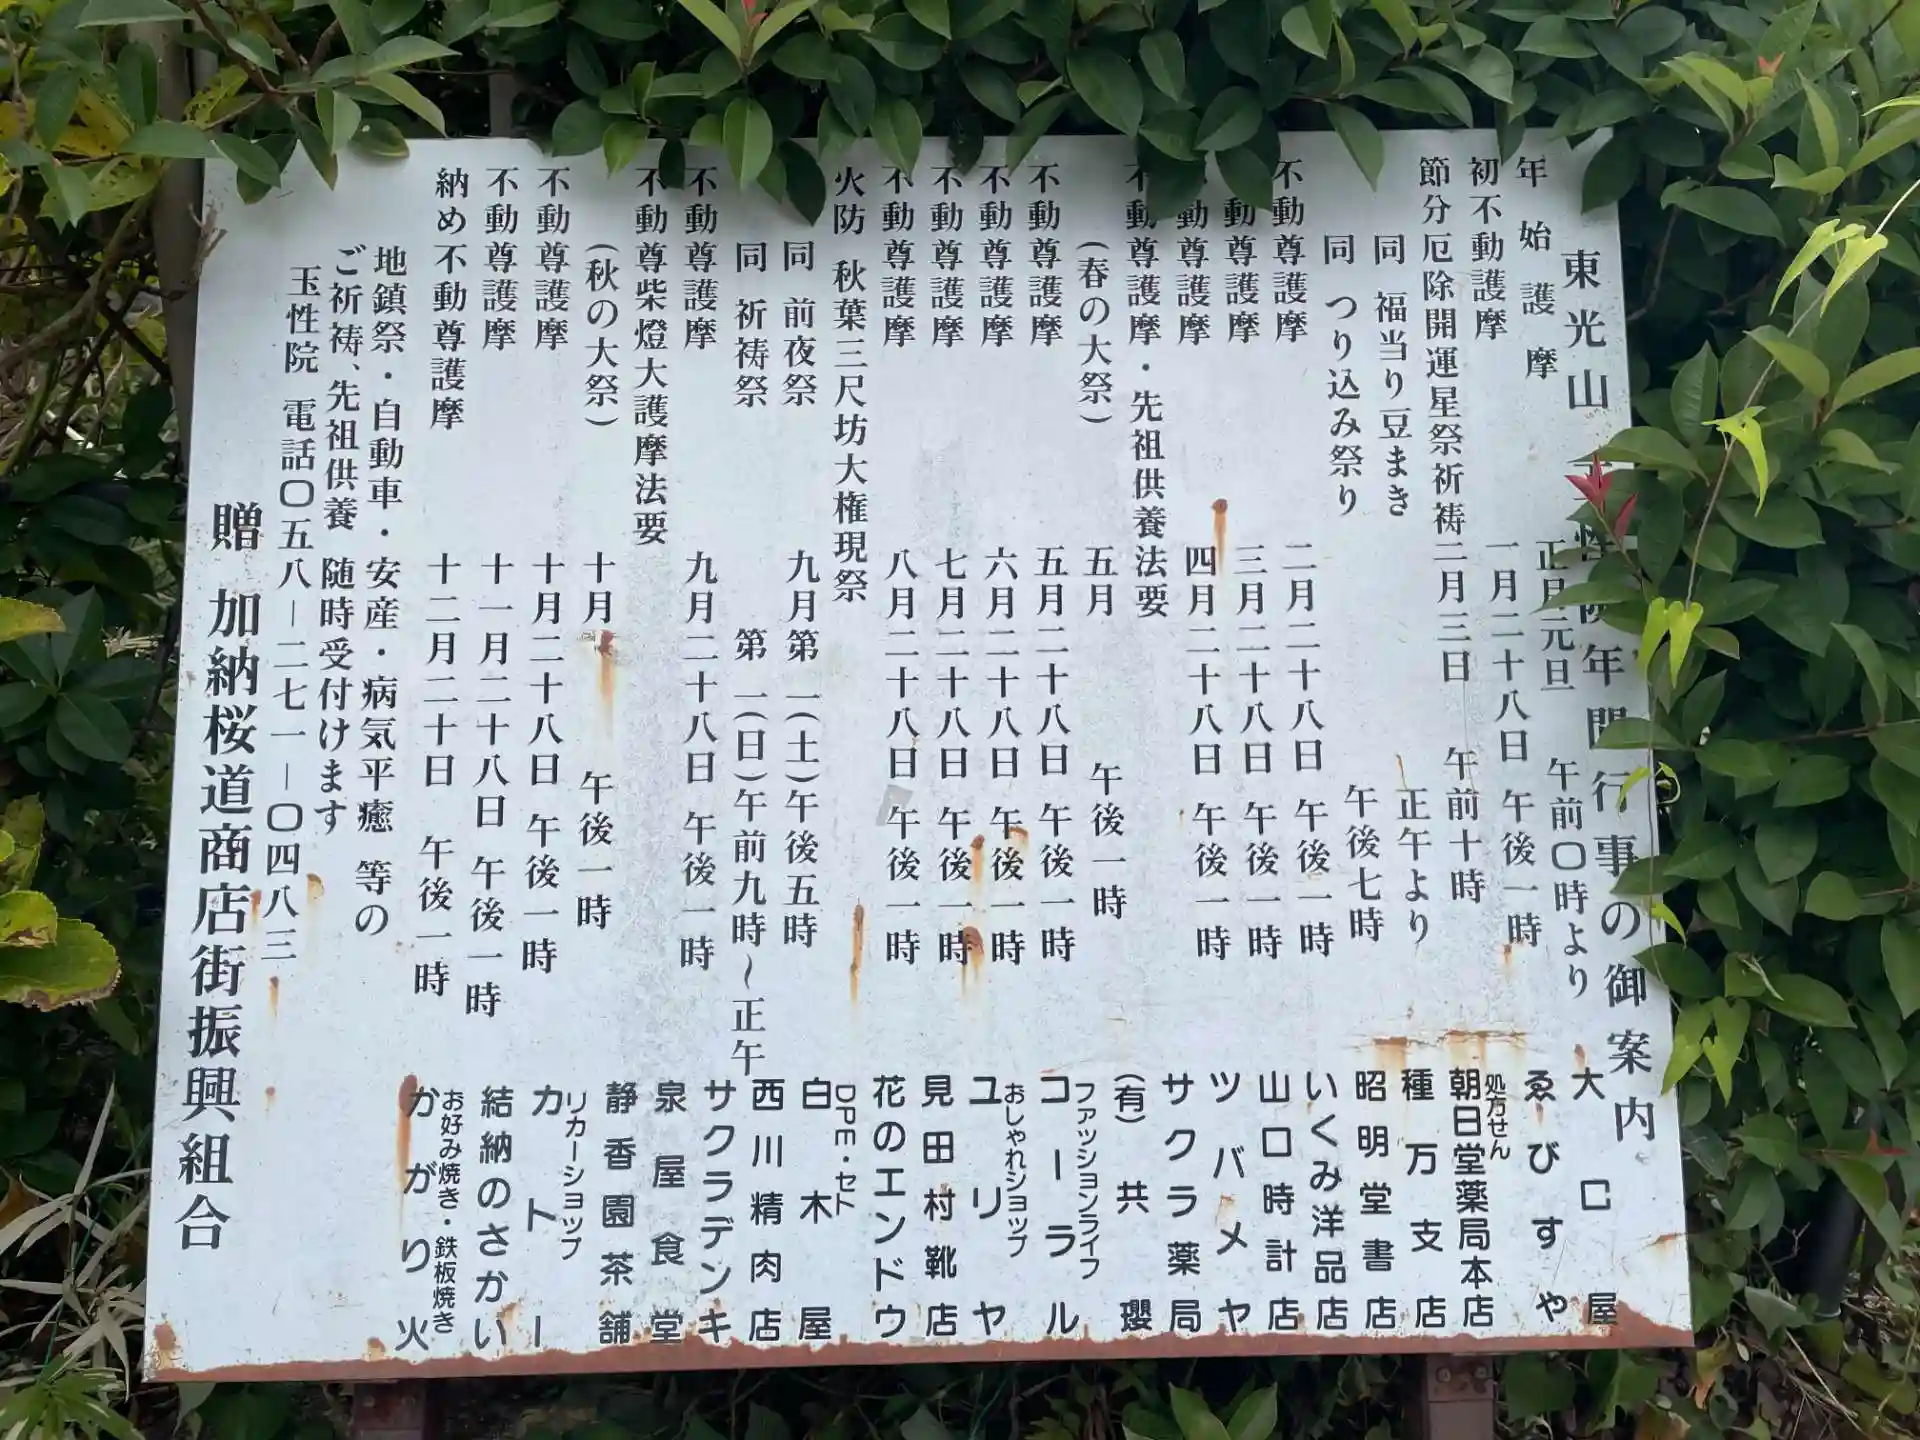 東光山 玉性院年間行事の御案内
年始護摩 正月元旦 午前〇時より
初不動護摩 一月二十八日 午後一時
節分厄除開運星祭祈祷 二月三日 午前十時
同 福当り豆まき 正午より
同 つり込み祭り 午後七時
不動尊護摩 二月二十八日 午後一時
不動尊護摩 三月二十八日 午後一時
不動尊護摩 四月二十八日 午後一時
不動尊護摩・先祖供養法要
(春の大祭) 五月 午後一時
不動尊護摩 五月二十八日 午後一時
不動尊護摩 六月二十八日 午後一時
不動尊護摩 七月二十八日 午後一時
不動尊護摩 八月二十八日 午後一時
火防 秋葉三尺坊大権現祭
同 前夜祭 九月第一(土)午後五時
同 祈祷祭 第一(日)午前九時~正午
不動尊護摩 九月二十八日 午後一時
不動尊柴燈大護摩法要
(秋の大祭) 十月 午後一時
不動尊護摩 十月二十八日 午後一時
不動尊護摩 十一月二十八日 午後一時
納め不動尊護摩 十二月二十日 午後一時
地鎮祭・自動車・安産・病気平癒 等の
ご祈祷、先祖供養 随時受付けます
玉性院 電話〇五八ー二七一ー〇四八三
贈 加納桜道商店街振興組合
大口屋
ゑびすや
処方せん
朝日堂薬局本店
種万支店
昭明堂書店
いくみ洋品店
山口時計店
ツバメヤ
サクラ薬局
(有)共瓔
ファッションライフ
コーラル
おしゃれショップ
ユリヤ
見田村靴店
花のエンドウ
DPE・セト
白木屋
西川精肉店
サクラデンキ
泉屋食堂
静香園茶舗
リカーショップ
カトー
結納のさかい
お好み焼き・鉄板焼き
かがり火